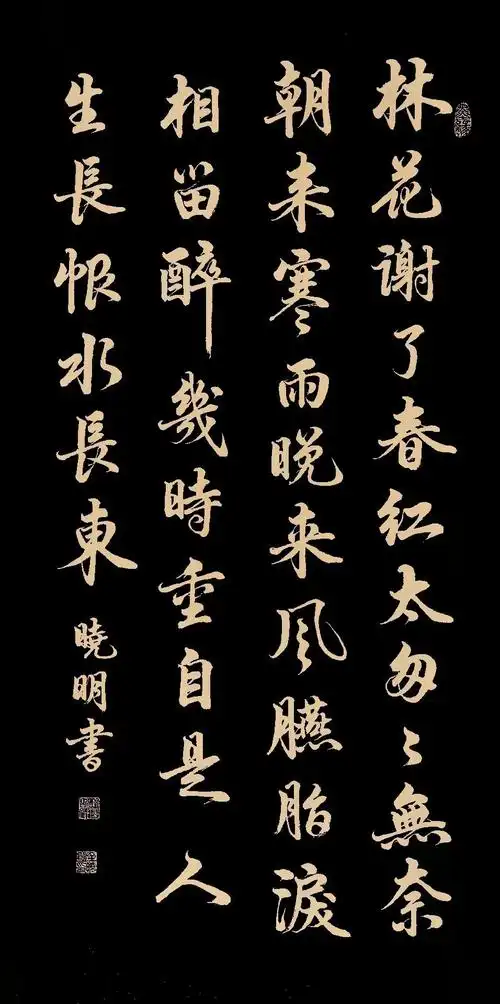 林花謝了春紅太匆〻無奈
朝来寒雨晚来风臙脂淚
相留醉幾時重自是人
生長恨水長東
曉明書